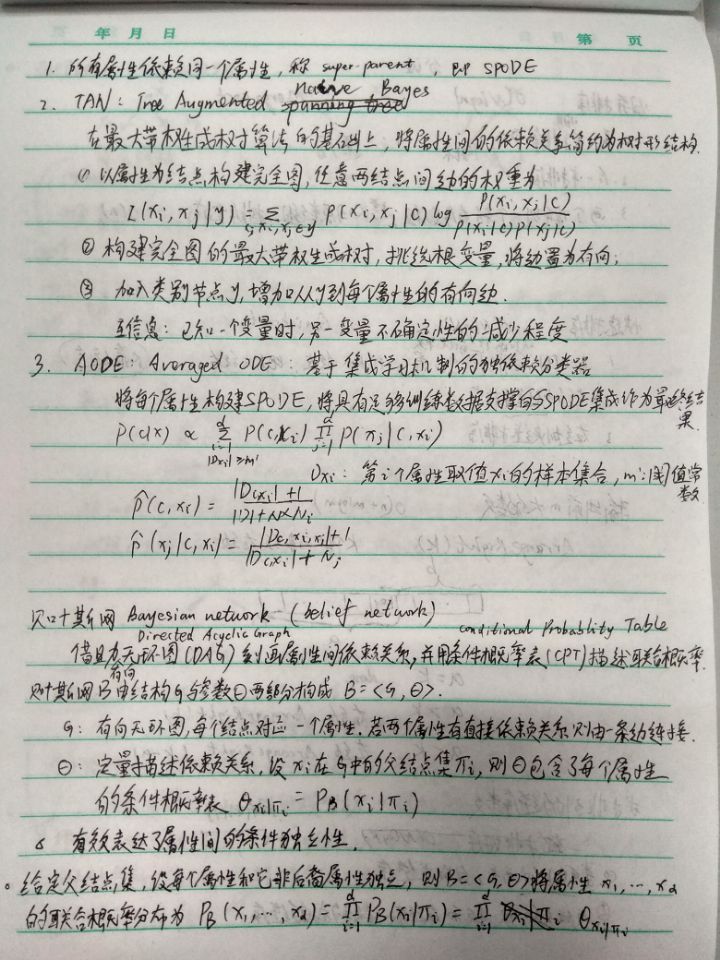 年 月 日 第 页
1. 所有属性依赖同一个属性，称 super-parent，即 SPODE
2. TAN：Tree Augmented Naive Bayes
在最大带权生成树算法的基础上，将属性间的依赖关系简约为树形结构.
① 以属性为结点构建完全图，任意两结点间边的权重为
I(xi, xj|y) = Σ P(xi, xj|c) log P(xi, xj|c) / P(xi|c)P(xj|c)
② 构建完全图的最大带权生成树，挑选根变量，将边置为有向；
③ 加入类别节点y，增加从y到每个属性的有向边.
互信息：已知一个变量时，另一变量不确定性的减少程度
3. AODE：Averaged ODE：基于集成学习机制的独依赖分类器
将每个属性构建SPODE，将具有足够训练数据支撑的SPODE集成作为最终结果.
P(c|x) ∝ Σ_{i=1, |Dxi|≥m'}^{d} P(c, xi) ∏_{j=1}^{d} P(xj|c, xi)
Dxi：第i个属性取值xi的样本集合，m'：阈值常数
P̂(c, xi) = |Dc,xi|+1 / |D|+N×Ni
P̂(xj|c, xi) = |Dc,xi,xj|+1 / |Dc,xi|+Nj
贝叶斯网 Bayesian network (belief network)
Directed Acyclic Graph conditional Probability Table
借助有向无环图(DAG)刻画属性间依赖关系，并用条件概率表(CPT)描述联合概率.
贝叶斯网B由结构G与参数Θ两部分构成 B=<G, Θ>.
G：有向无环图，每个结点对应一个属性. 若两个属性有直接依赖关系则由一条边连接.
Θ：定量描述依赖关系，设xi在G中的父结点集πi，则Θ包含了每个属性
的条件概率表 θxi|πi = PB(xi|πi)
有效表达了属性间的条件独立性.
给定父结点集，设每个属性和它非后裔属性独立，则B=<G, Θ>将属性 x1, …, xd
的联合概率分布为 PB(x1, …, xd) = ∏_{i=1}^{d} PB(xi|πi) = ∏_{i=1}^{d} θxi|πi